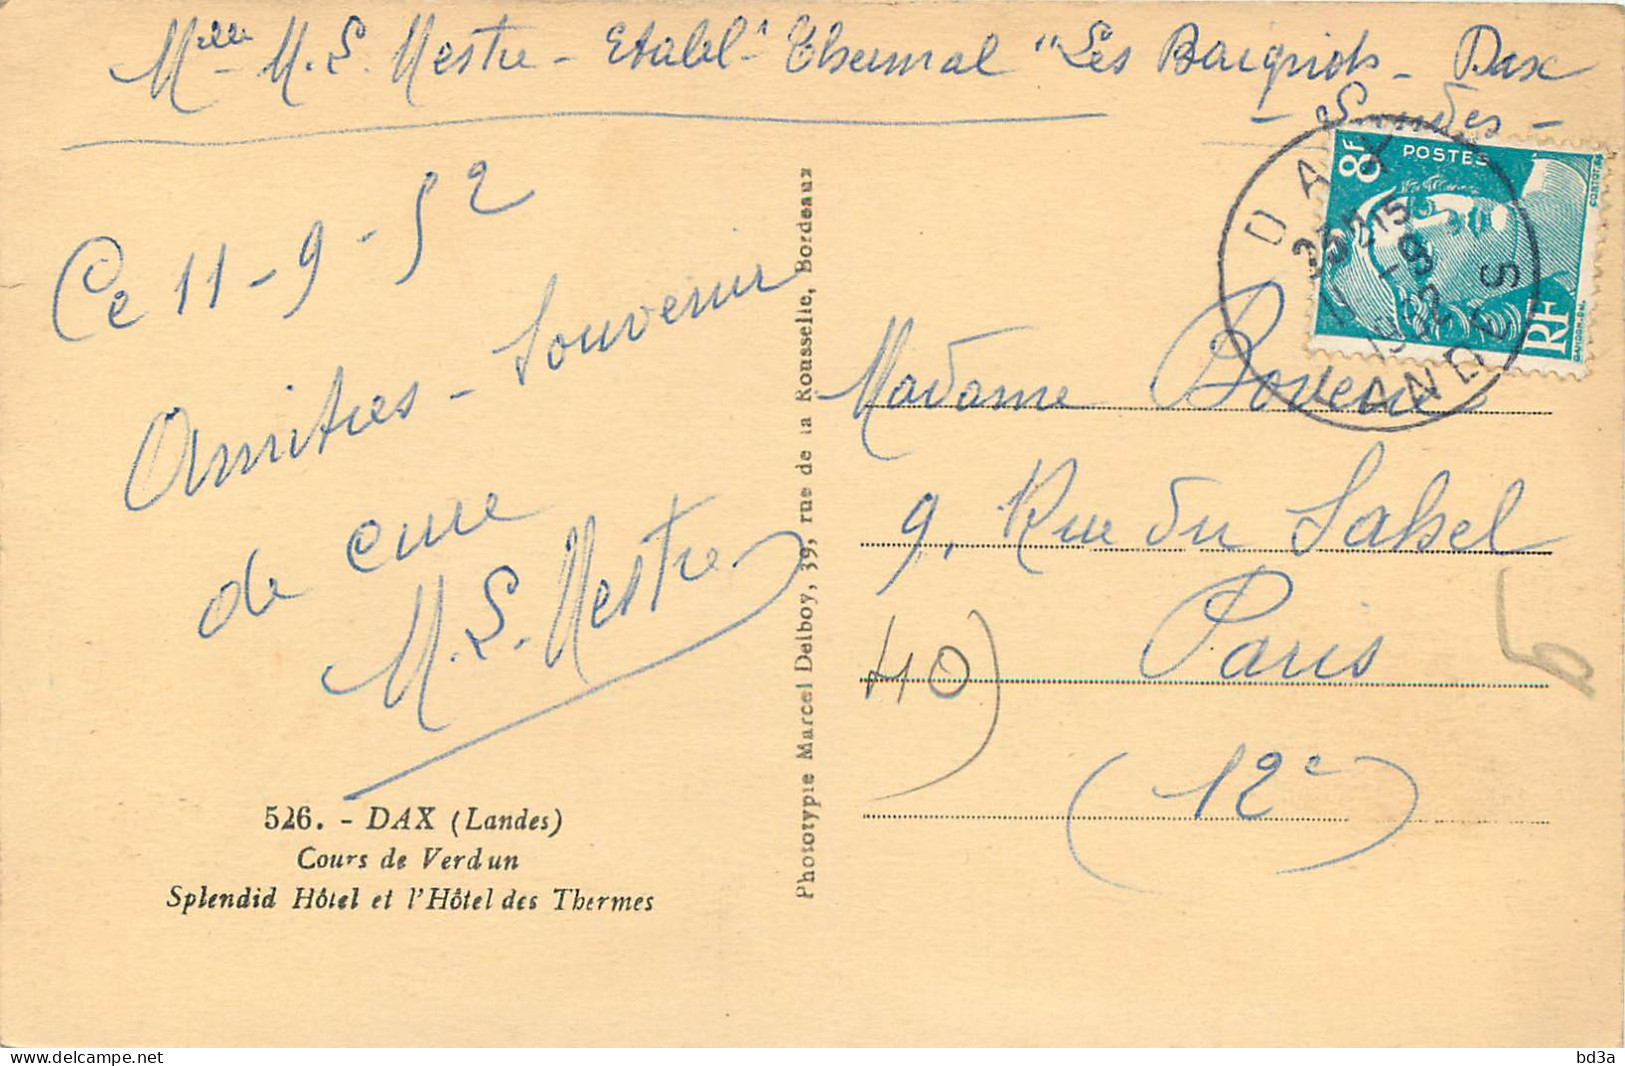 Mlle M. L. Mestre - Etabl.t Thermal "Les Baignots - Dax
- Landes -
Ce 11-9-52
Amitiés - Souvenir
de cure
M. L. Mestre
526. - DAX (Landes)
Cours de Verdun
Splendid Hôtel et l'Hôtel des Thermes
Phototypie Marcel Delboy, 39, rue de la Rousselle, Bordeaux
8F
POSTES
RF
DAX
11 -9
1952
LANDES
Madame
9, Rue du Sahel
Paris
(12e)
40)
delcampe.net
bd3a